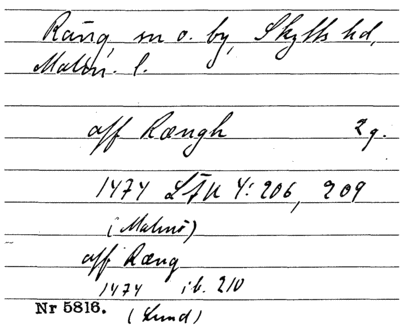 Räng, sn o. by, Skytts hd,
Malm. l.
aff Rængh 2 g.
1474 LÄU 4: 206, 209
(Malmö)
aff Ræng
1474 ib. 210
Nr 5816. (Lund)